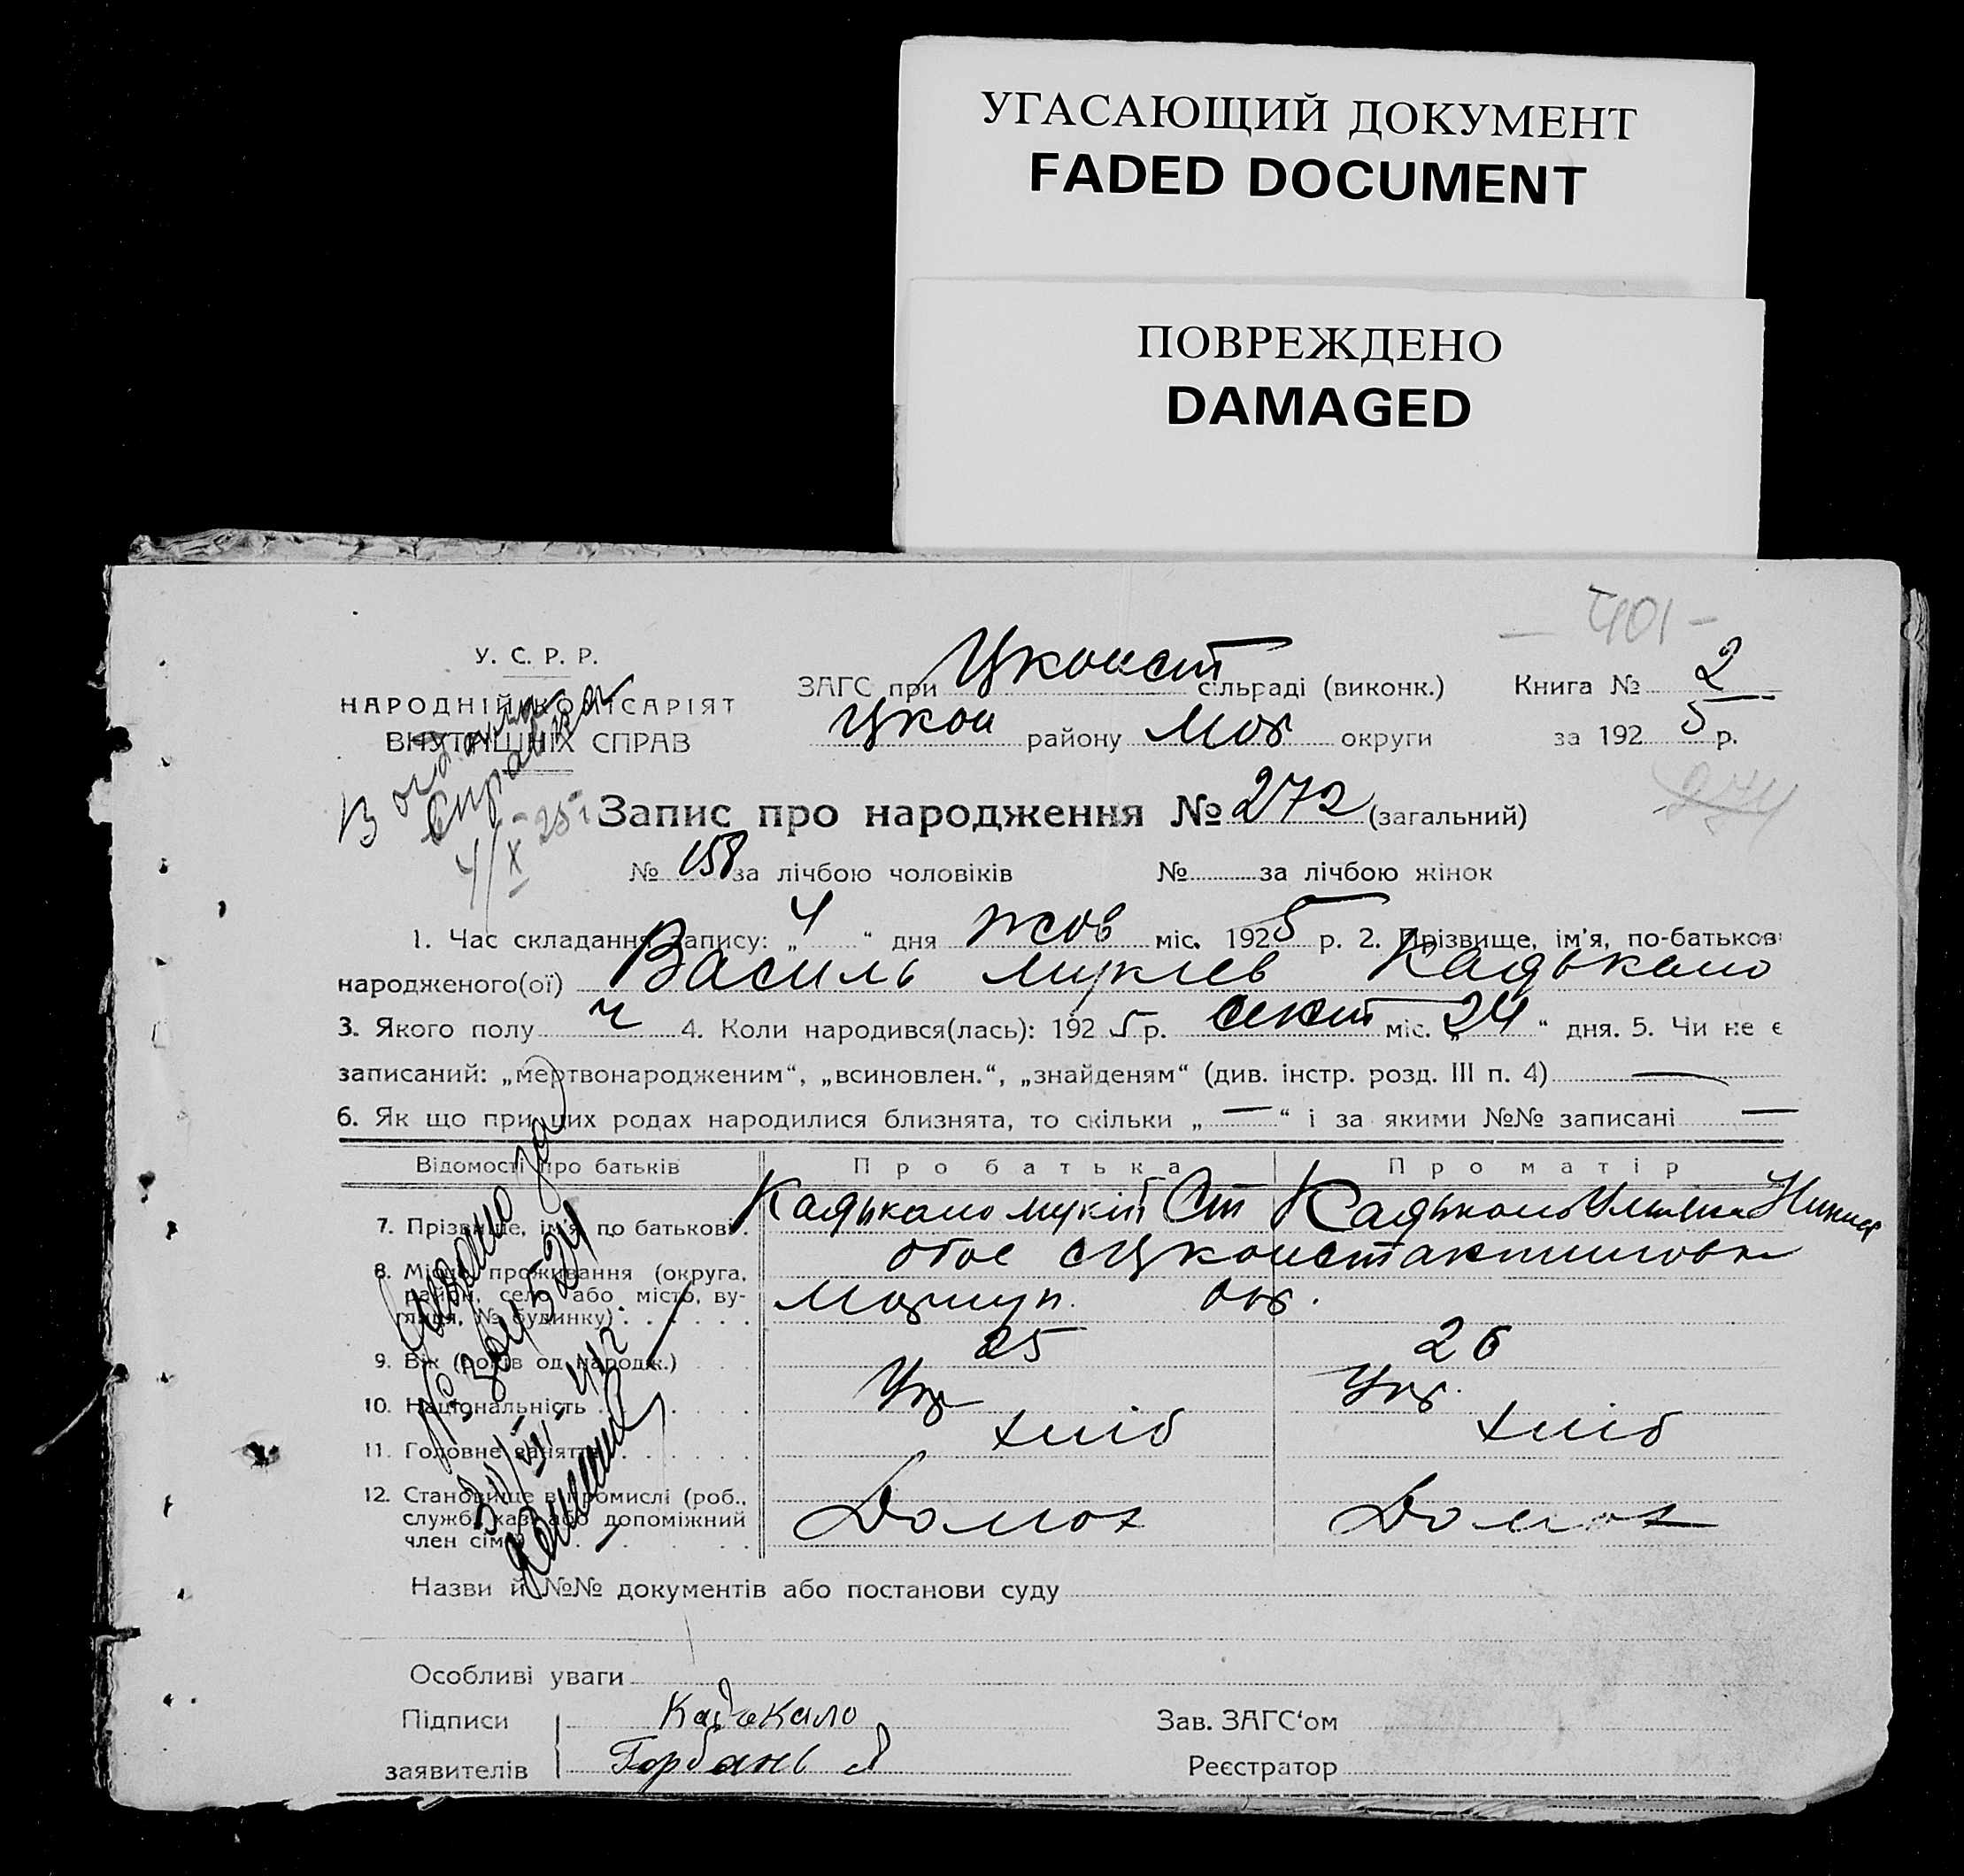 УГАСАЮЩИЙ ДОКУМЕНТ
FADED DOCUMENT
ПОВРЕЖДЕНО
DAMAGED
У. С. Р. Р.
НАРОДНІЙ КОМІСАРІЯТ
ВНУТРІШНІХ СПРАВ
ЗАГС при Цконст сільраді (виконк.)
Цкон району Мар округи
Книга № 2
за 1925 р.
401
274
справка
4/X-25
Запис про народження № 272 (загальний)
№ 158 за лічбою чоловіків № за лічбою жінок
1. Час складання запису: „4“ дня жов міс. 1925 р. 2. Прізвище, ім'я, по-батькові
народженого(ої) Василь Кадькало
3. Якого полу ч 4. Коли народився(лась): 1925 р. сект міс. „24“ дня. 5. Чи не є
записаний: „мертвонародженим“, „всиновлен.“, „знайденям“ (див. інстр. розд. III п. 4) —
6. Як що при цих родах народилися близнята, то скільки „—“ і за якими №№ записані —
Відомості про батьків Про батька Про матір
7. Прізвище, ім'я, по батькові. Кадькало Мукій Ст Кадькало
8. Місце проживання (округа, район, село або місто, вулиця, № будинку) обоє
окр.
9. Вік (років од народж.) 25 26
10. Національність Укр Укр.
11. Головне заняття хліб хліб
12. Становище в промислі (роб., служб., хаз. або допоміжний член сім'ї) Домох Домох
Назви й №№ документів або постанови суду
Особливі уваги
Підписи заявителів Кадькало
Горбань
Зав. ЗАГС'ом
Реєстратор